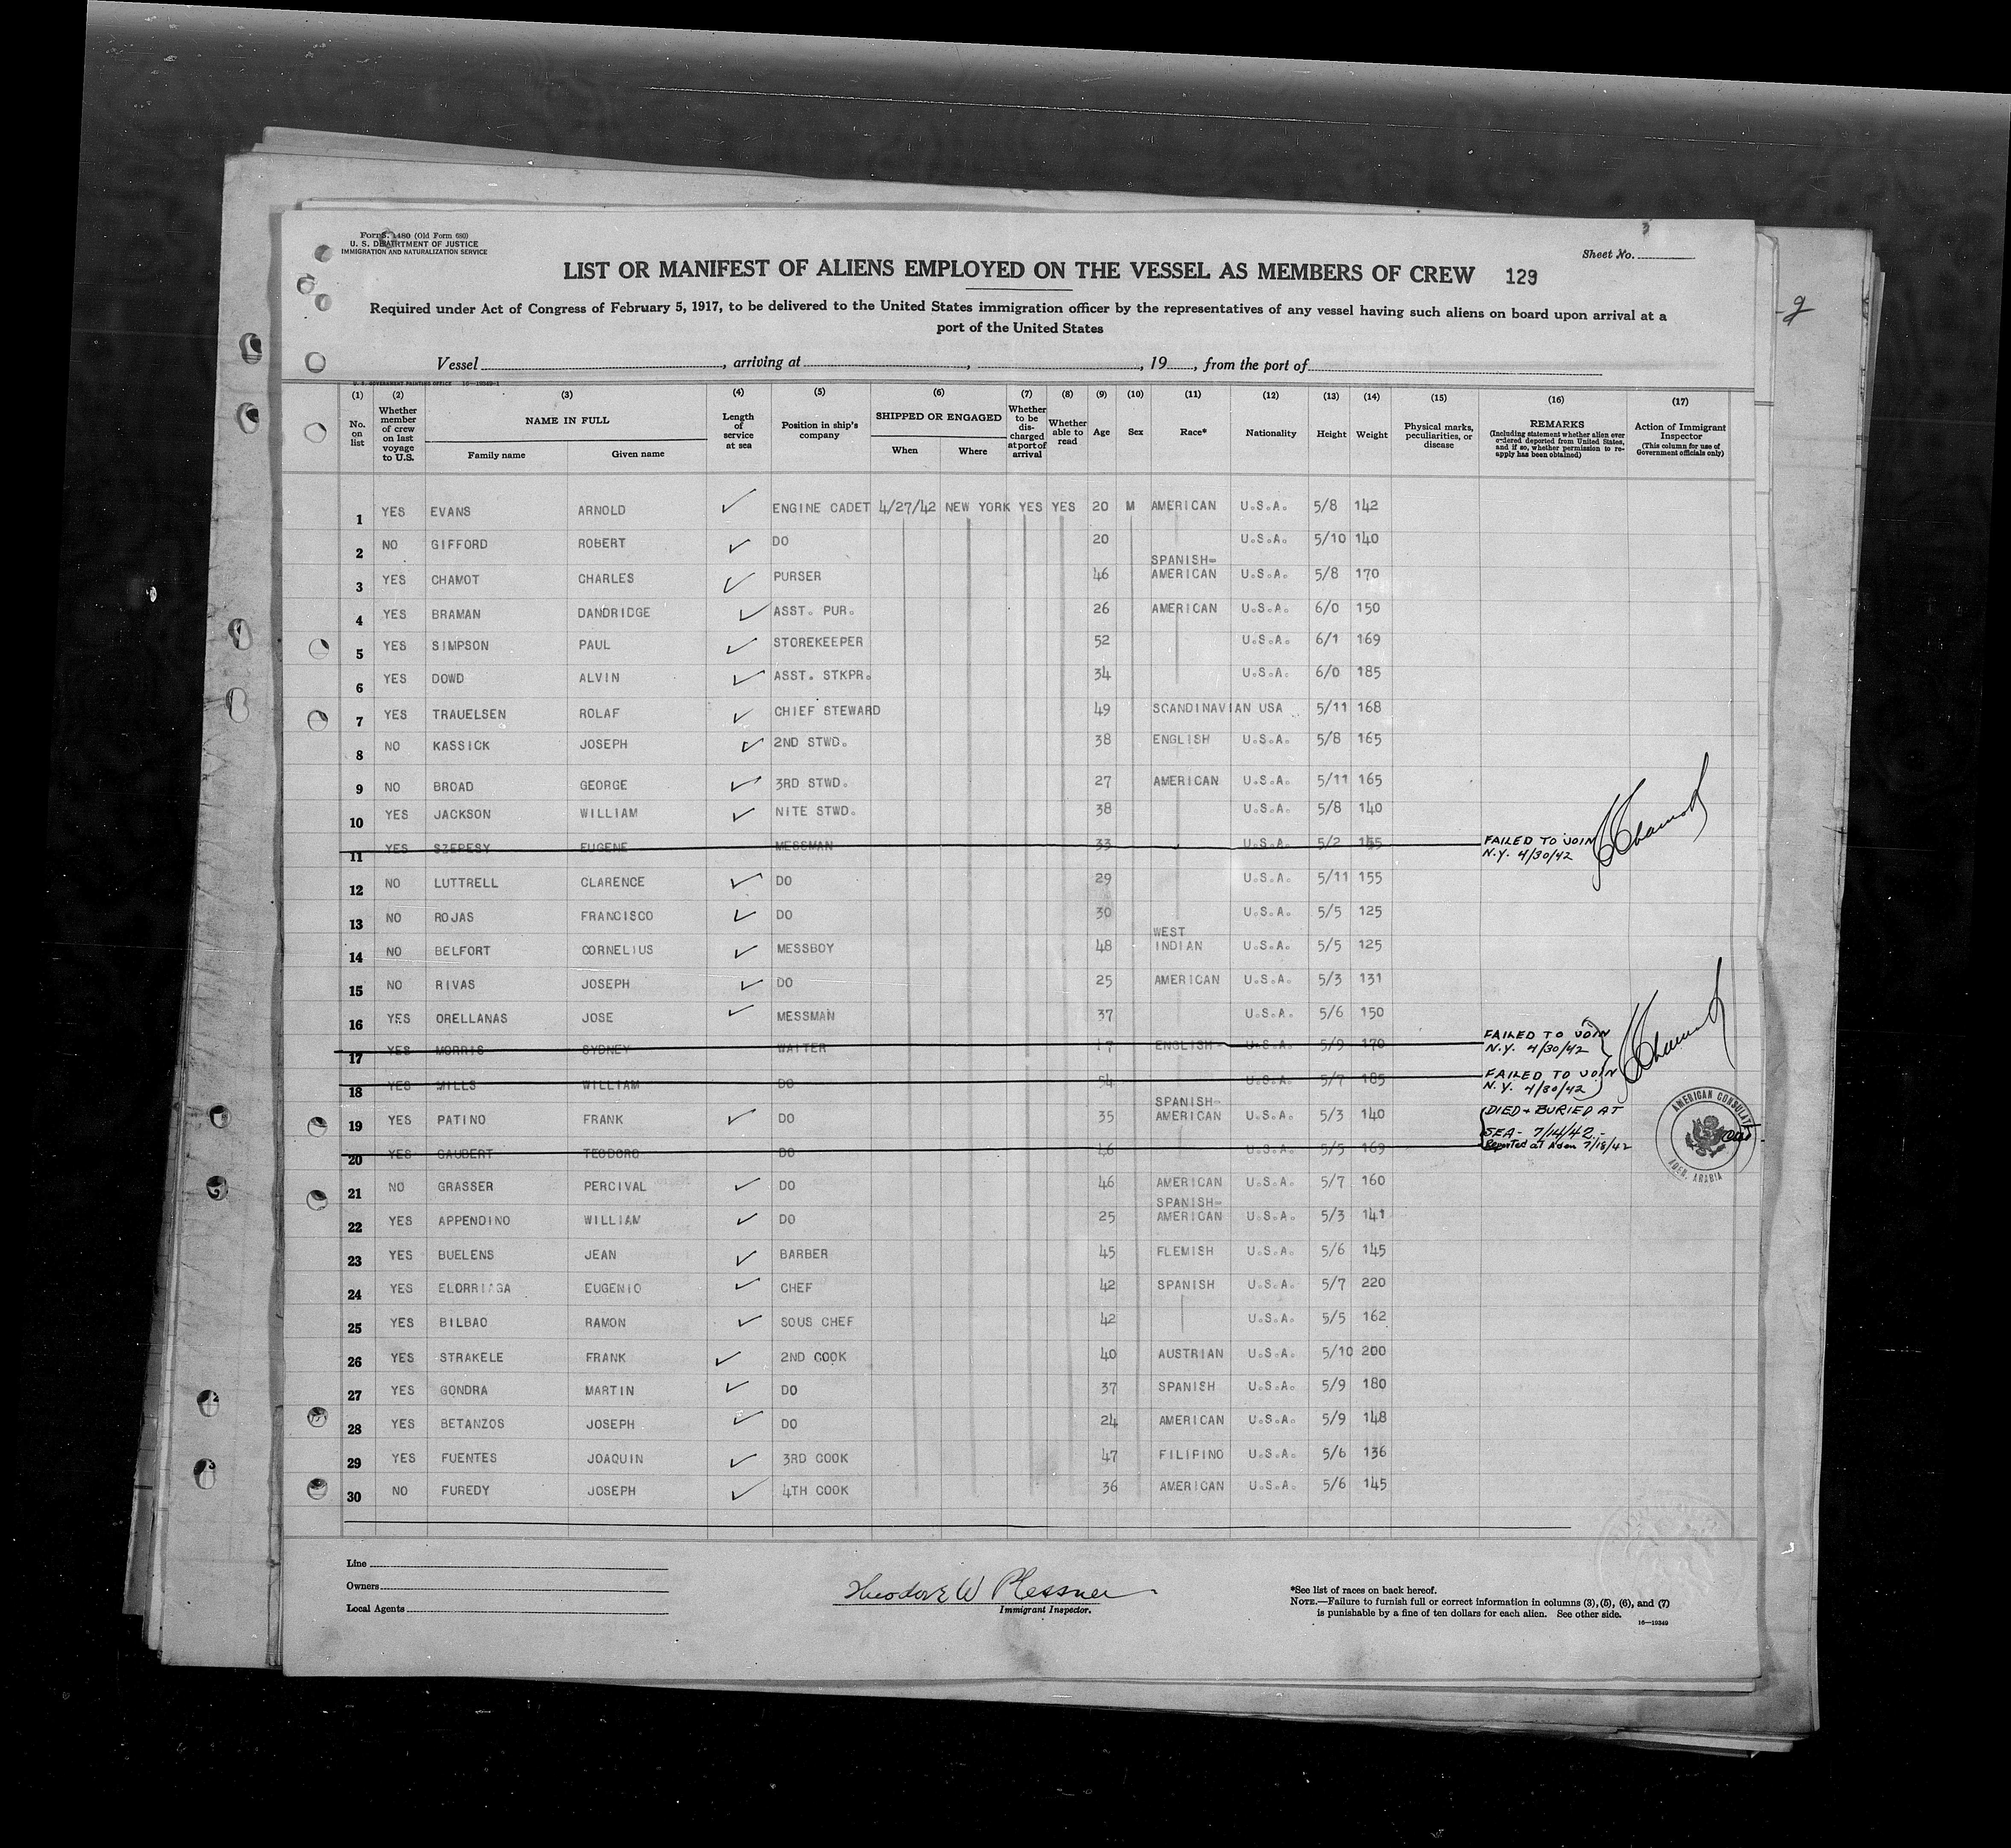 Form I-480 (Old Form 680)
U. S. DEPARTMENT OF JUSTICE
IMMIGRATION AND NATURALIZATION SERVICE
Sheet No.
LIST OR MANIFEST OF ALIENS EMPLOYED ON THE VESSEL AS MEMBERS OF CREW 129
Required under Act of Congress of February 5, 1917, to be delivered to the United States immigration officer by the representatives of any vessel having such aliens on board upon arrival at a
port of the United States
Vessel , arriving at , , 19 , from the port of
U. S. GOVERNMENT PRINTING OFFICE 16—19349-1
(1) (2) (3) (4) (5) (6) (7) (8) (9) (10) (11) (12) (13) (14) (15) (16) (17)
No. on list
Whether member of crew on last voyage to U.S.
NAME IN FULL
Family name Given name
Length of service at sea
Position in ship's company
SHIPPED OR ENGAGED
When Where
Whether to be discharged at port of arrival
Whether able to read
Age
Sex
Race*
Nationality
Height
Weight
Physical marks, peculiarities, or disease
REMARKS
(Including statement whether alien ever ordered deported from United States, and if so, whether permission to re-apply has been obtained)
Action of Immigrant Inspector
(This column for use of Government officials only)
1 YES EVANS ARNOLD ENGINE CADET 4/27/42 NEW YORK YES YES 20 M AMERICAN U.S.A. 5/8 142
2 NO GIFFORD ROBERT DO 20 U.S.A. 5/10 140
3 YES CHAMOT CHARLES PURSER 46 SPANISH-AMERICAN U.S.A. 5/8 170
4 YES BRAMAN DANDRIDGE ASST. PUR. 26 AMERICAN U.S.A. 6/0 150
5 YES SIMPSON PAUL STOREKEEPER 52 U.S.A. 6/1 169
6 YES DOWD ALVIN ASST. STKPR. 34 U.S.A. 6/0 185
7 YES TRAUELSEN ROLAF CHIEF STEWARD 49 SCANDINAVIAN USA 5/11 168
8 NO KASSICK JOSEPH 2ND STWD. 38 ENGLISH U.S.A. 5/8 165
9 NO BROAD GEORGE 3RD STWD. 27 AMERICAN U.S.A. 5/11 165
10 YES JACKSON WILLIAM NITE STWD. 38 U.S.A. 5/8 140
11 YES SZEPESY EUGENE MESSMAN 33 U.S.A. 5/2 145 FAILED TO JOIN N.Y. 4/30/42 CChamot
12 NO LUTTRELL CLARENCE DO 29 U.S.A. 5/11 155
13 NO ROJAS FRANCISCO DO 30 U.S.A. 5/5 125
14 NO BELFORT CORNELIUS MESSBOY 48 WEST INDIAN U.S.A. 5/5 125
15 NO RIVAS JOSEPH DO 25 AMERICAN U.S.A. 5/3 131
16 YES ORELLANAS JOSE MESSMAN 37 U.S.A. 5/6 150
17 YES MORRIS SYDNEY WAITER ENGLISH U.S.A. 5/9 170 FAILED TO JOIN N.Y. 4/30/42 CChamot
18 YES MILLS WILLIAM DO 54 U.S.A. 5/7 185 FAILED TO JOIN N.Y. 4/30/42
19 YES PATINO FRANK DO 35 SPANISH-AMERICAN U.S.A. 5/3 140
20 YES GAUBERT TEODORO DO 46 U.S.A. 5/5 169 DIED & BURIED AT SEA - 7/14/42 - Reported at Aden 7/18/42
AMERICAN CONSULATE
ADEN, ARABIA
21 NO GRASSER PERCIVAL DO 46 AMERICAN U.S.A. 5/7 160
22 YES APPENDINO WILLIAM DO 25 SPANISH-AMERICAN U.S.A. 5/3 141
23 YES BUELENS JEAN BARBER 45 FLEMISH U.S.A. 5/6 145
24 YES ELORRIAGA EUGENIO CHEF 42 SPANISH U.S.A. 5/7 220
25 YES BILBAO RAMON SOUS CHEF 42 U.S.A. 5/5 162
26 YES STRAKELE FRANK 2ND COOK 40 AUSTRIAN U.S.A. 5/10 200
27 YES GONDRA MARTIN DO 37 SPANISH U.S.A. 5/9 180
28 YES BETANZOS JOSEPH DO 24 AMERICAN U.S.A. 5/9 148
29 YES FUENTES JOAQUIN 3RD COOK 47 FILIPINO U.S.A. 5/6 136
30 NO FUREDY JOSEPH 4TH COOK 36 AMERICAN U.S.A. 5/6 145
Line
Owners
Local Agents
Theodore W Plessner
Immigrant Inspector.
*See list of races on back hereof.
NOTE.—Failure to furnish full or correct information in columns (3), (5), (6), and (7)
is punishable by a fine of ten dollars for each alien. See other side.
16—19349